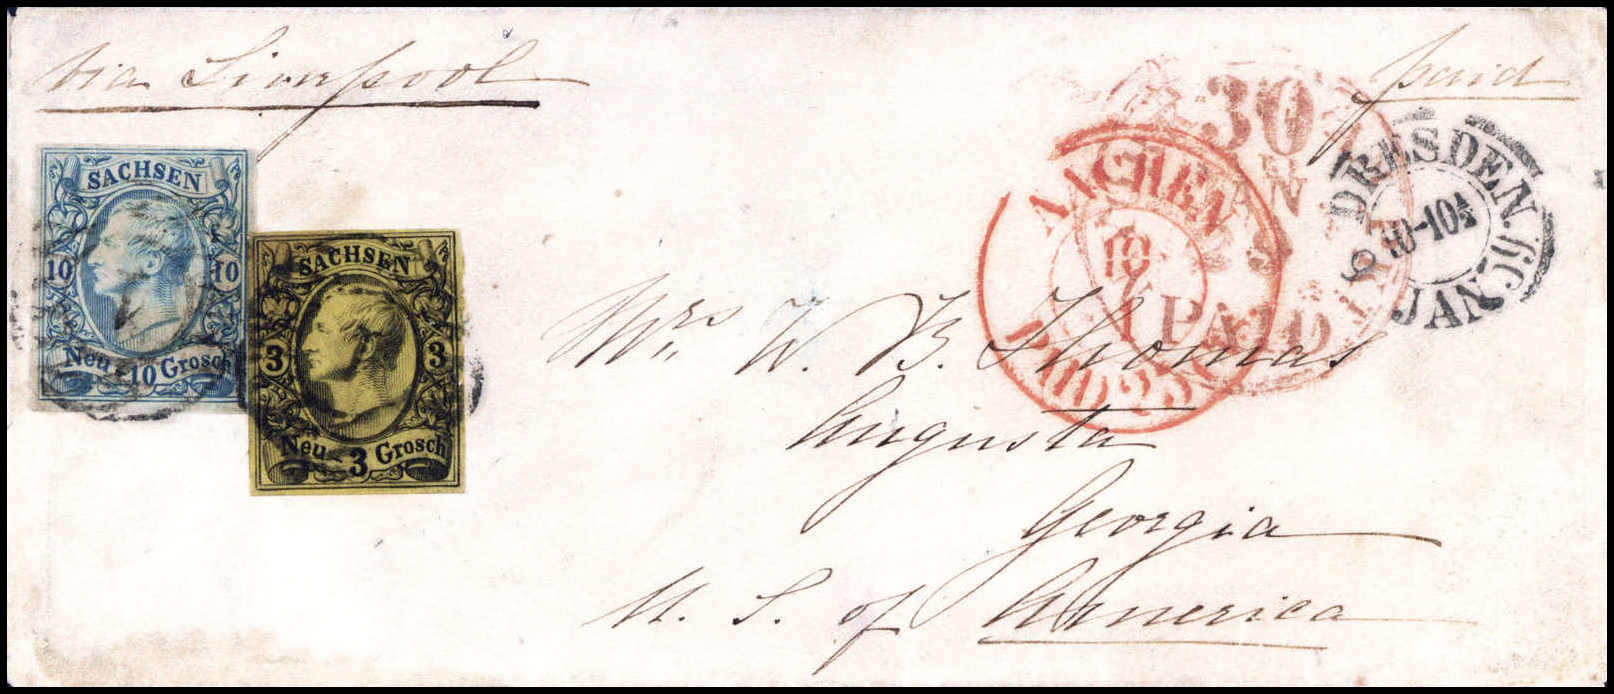 via Liverpool
paid
SACHSEN
10 10
Neu-Grosch
10
SACHSEN
3 3
Neu-Grosch
3
30
PAID
AACHEN
10
PAID 25
DRESDEN
10-10½
JAN
Mrs W. B. Thomas
Augusta
Georgia
U. S. of America